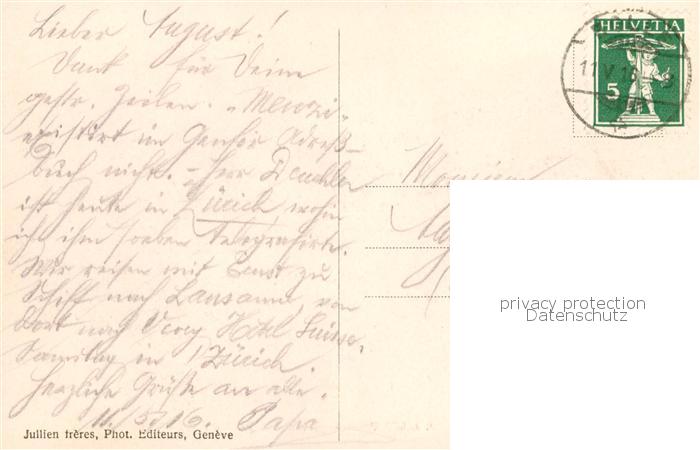 Lieber August!
Dank für Deine
gestr. Zeilen. "Menzi"
existirt im Genfer Adreß-
buch nicht. - Herr
ist heute in Zürich wohin
ich ihm soeben telegrafirte.
Wir reisen mit Ernst zu
Schiff nach Lausanne, von
dort nach Vevey Hotel Suisse.
Samstag in Zürich.
Herzliche Grüße an alle.
11/5 16. Papa
Jullien frères, Phot. Editeurs, Genève
HELVETIA
5
11.V.16
Monsieur
privacy protection
Datenschutz